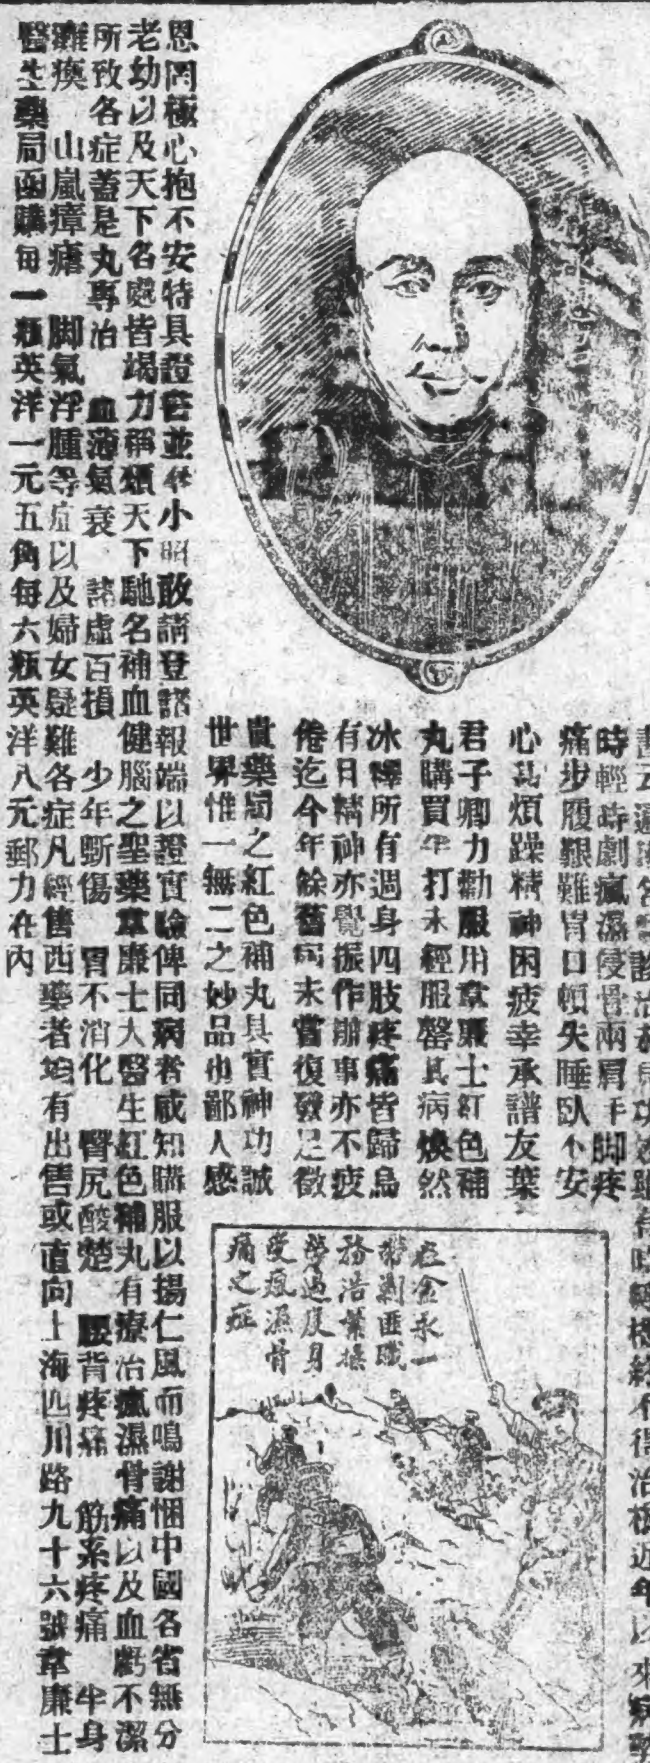 時輕時劇瘋濕侵骨兩肩手脚疼
痛步履艱難胃口頓失睡臥不安
心亂煩躁精神困疲幸承譜友葉
君子卿力勸服用韋廉士紅色補
丸購買半打未經服罄其病煥然
冰釋所有週身四肢疼痛皆歸烏
有日精神亦覺振作辦事亦不疲
倦迄今年餘舊病未嘗復發足徵
貴藥局之紅色補丸具實神功誠
世界惟一無二之妙品也鄙人感
恩罔極心抱不安特具證書並本小照敢請登諸報端以證實驗俾同病者咸知購服以揚仁風而鳴謝悃中國各省無分
老幼以及天下名處皆竭力稱頌天下馳名補血健腦之聖藥韋廉士大醫生紅色補丸有療治瘋濕骨痛以及血虧不潔
所致各症蓋是丸專治 血薄氣衰 諸虛百損 少年斲傷 胃不消化 臀尻酸楚 腰背疼痛 筋系疼痛 半身
癱瘓 山嵐瘴瘧 脚氣浮腫等症以及婦女疑難各症凡經售西藥者均有出售或直向上海四川路九十六號韋廉士
醫生藥局函購每一瓶英洋一元五角每六瓶英洋八元郵力在內
在金永一
帶剿匪職
務浩繁操
勞過度身
受瘋濕骨
痛之症